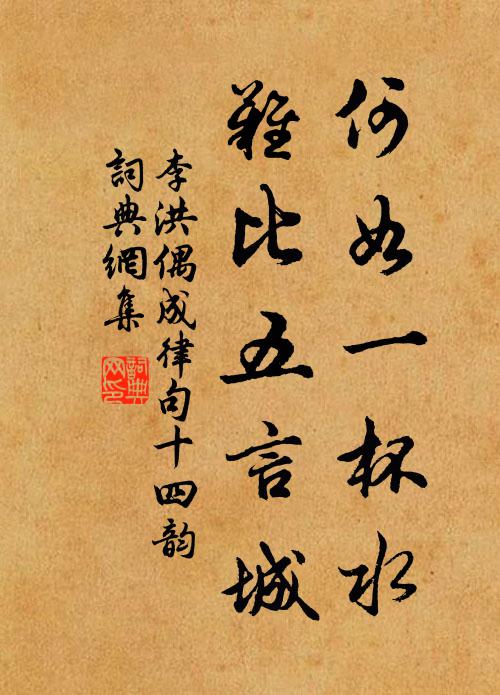 何如一杯水
難比五言城
李洪偶成律句十四韵
詞典網集
詞典網印